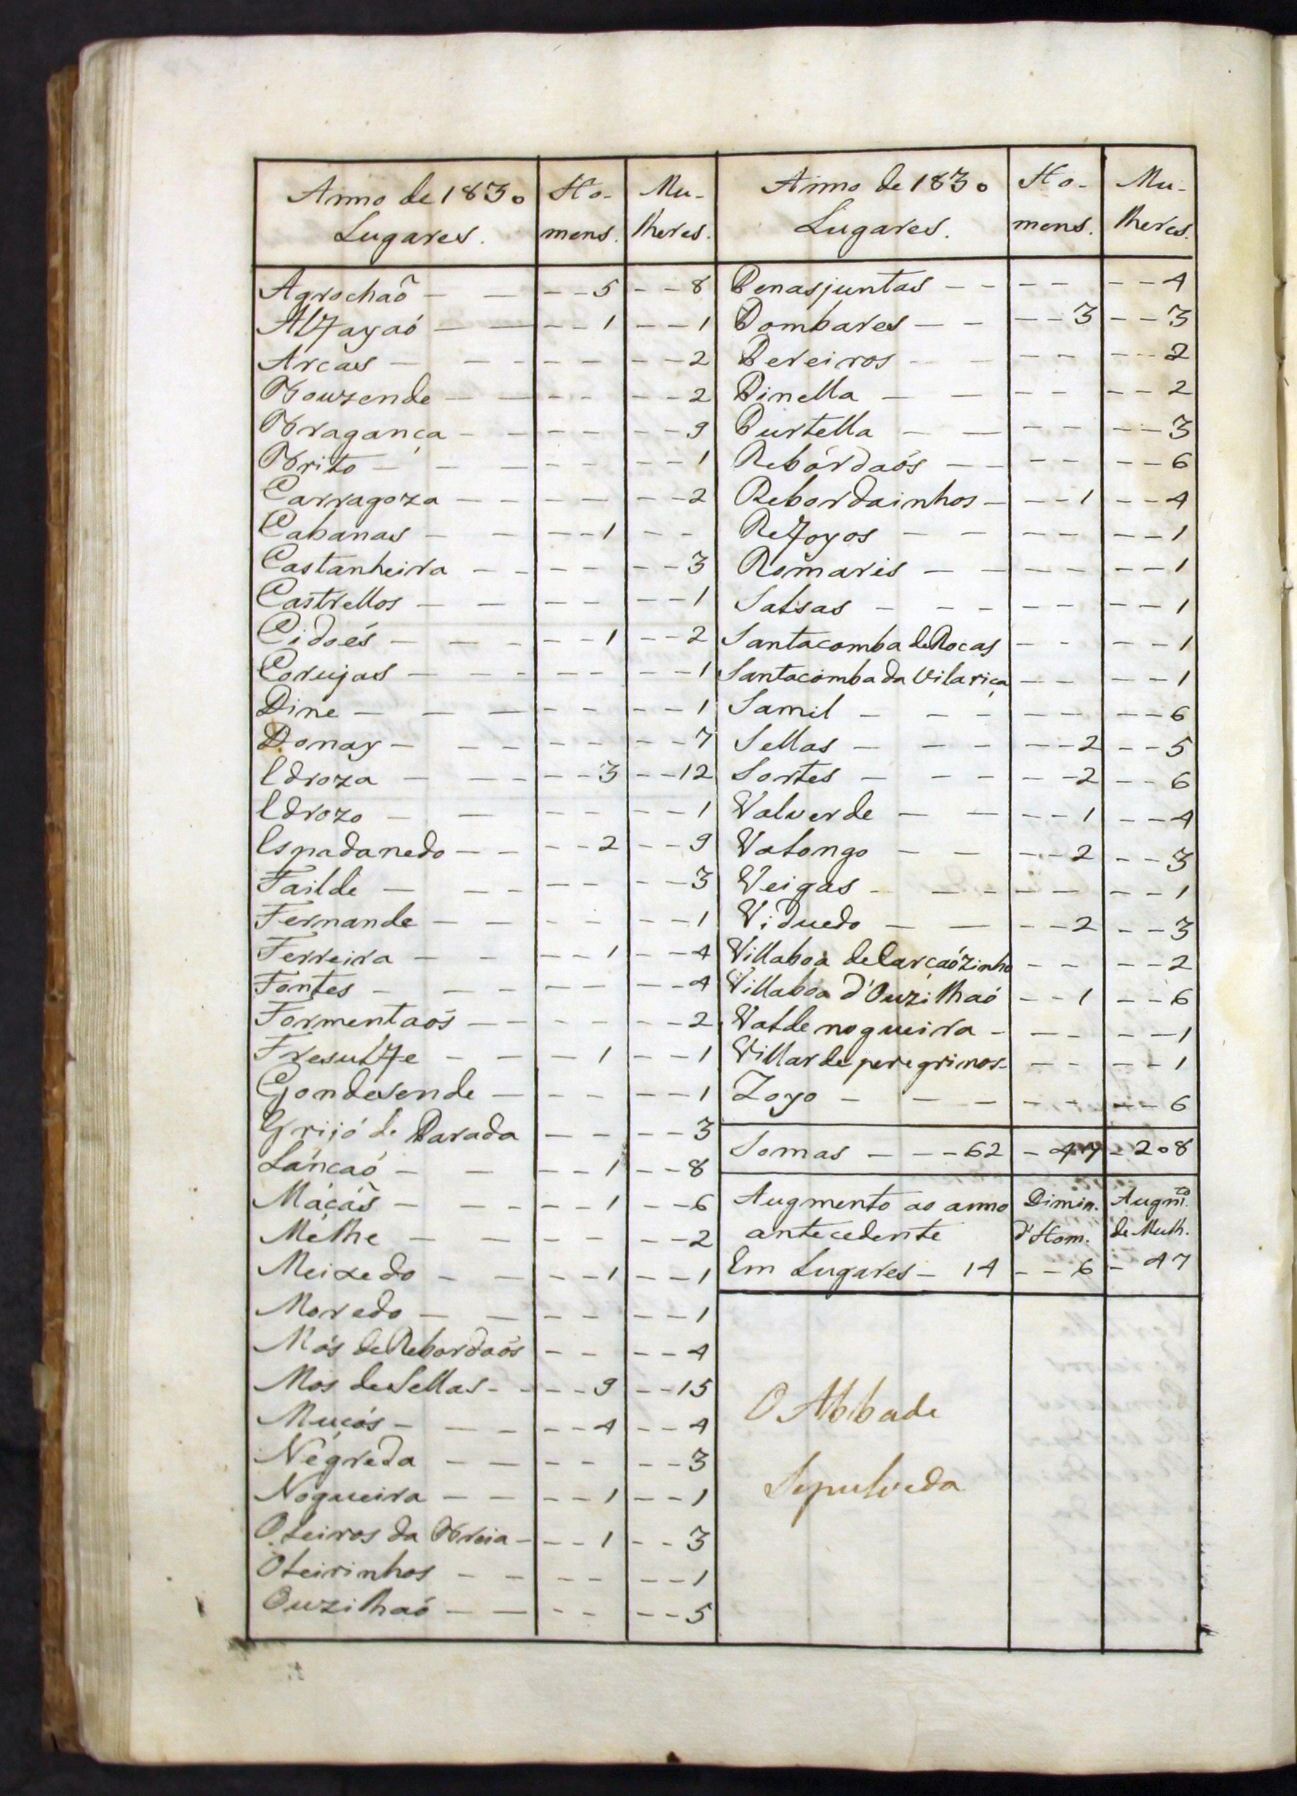 Anno de 1830 Ho- Mu-
Lugares. mens. lheres.
Agrochaõ - - 5 - - 8
Alfayaó - - 1 - - 1
Arcas - - - - 2
Bouzende - - - - 2
Bragança - - - - 9
Brito - - - - 1
Carragoza - - - - 2
Cabanas - - 1 - -
Castanheira - - - - 3
Castrellos - - - - 1
Cidoés - - 1 - - 2
Corujas - - - - 1
Dine - - - - 1
Donay - - - - 7
Edroza - - 3 - - 12
Edrozo - - - - 1
Espadanedo - - 2 - - 9
Failde - - - - 3
Fernande - - - - 1
Ferreira - - 1 - - 4
Fontes - - - - 4
Formentaõs - - - - 2
Fresulfe - - 1 - - 1
Gondesende - - - - 1
Grijó de Parada - - - - 3
Láncaó - - 1 - - 8
Máçãs - - 1 - - 6
Mélhe - - - - 2
Meixedo - - 1 - - 1
Moredo - - - - 1
Mós de Rebordaõs - - - - 4
Mos de Sellas - - 9 - - 15
Muçós - - 4 - - 4
Négreda - - - - 3
Nogueira - - 1 - - 1
Oteiros da Vreia - - 1 - - 3
Oteirinhos - - - - 1
Ouzilhaó - - - - 5
Anno de 1830 Ho- Mu-
Lugares. mens. lheres.
Penasjuntas - - - - 4
Pombares - - 3 - - 3
Pereiros - - - - 2
Pinella - - - - 2
Purtella - - - - 3
Rebórdaós - - - - 6
Rebordainhos - - 1 - - 4
Refoyos - - - - 1
Romaris - - - - 1
Salsas - - - - 1
Santacomba de Rocas - - - - 1
Santacomba da Vilariça - - - - 1
Samil - - - - 6
Sellas - - 2 - - 5
Sortes - - 2 - - 6
Valverde - - 1 - - 4
Valongo - - 2 - - 3
Veigas - - - - 1
Viduedo - - 2 - - 3
Villaboa de Carçaózinho - - - - 2
Villaboa d'Ouzilhaó - - 1 - - 6
Valde nogueira - - - - 1
Villar de peregrinos - - - - 1
Zoyo - - - - 6
Somas - - - 62 - 47 - 208
Augmento ao anno Dimin. Augmto
antecedente d'Hom. de Mulh.
Em Lugares - 14 - - 6 - 47
O Abbade
Sepulveda